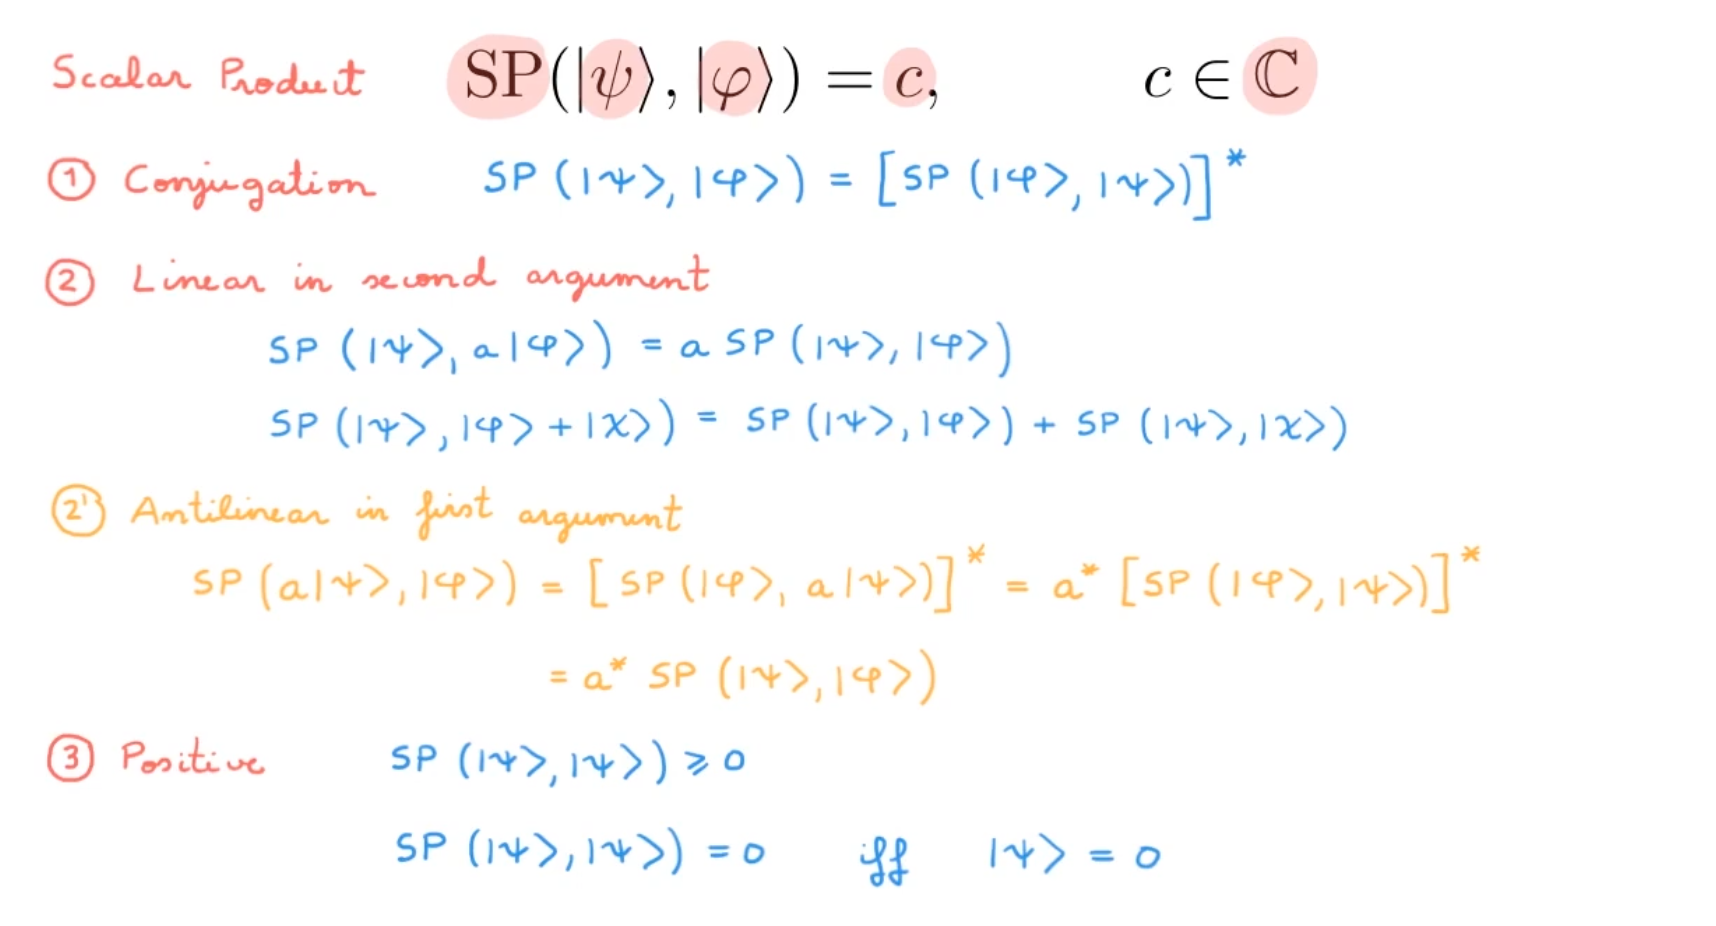 Scalar Product SP(|ψ⟩, |φ⟩) = c, c ∈ ℂ
① Conjugation SP (|ψ>, |φ>) = [SP (|φ>, |ψ>)]*
② Linear in second argument
SP (|ψ>, a|φ>) = a SP (|ψ>, |φ>)
SP (|ψ>, |φ> + |χ>) = SP (|ψ>, |φ>) + SP (|ψ>, |χ>)
②' Antilinear in first argument
SP (a|ψ>, |φ>) = [SP (|φ>, a|ψ>)]* = a* [SP (|φ>, |ψ>)]*
= a* SP (|ψ>, |φ>)
③ Positive SP (|ψ>, |ψ>) ⩾ 0
SP (|ψ>, |ψ>) = 0 iff |ψ> = 0